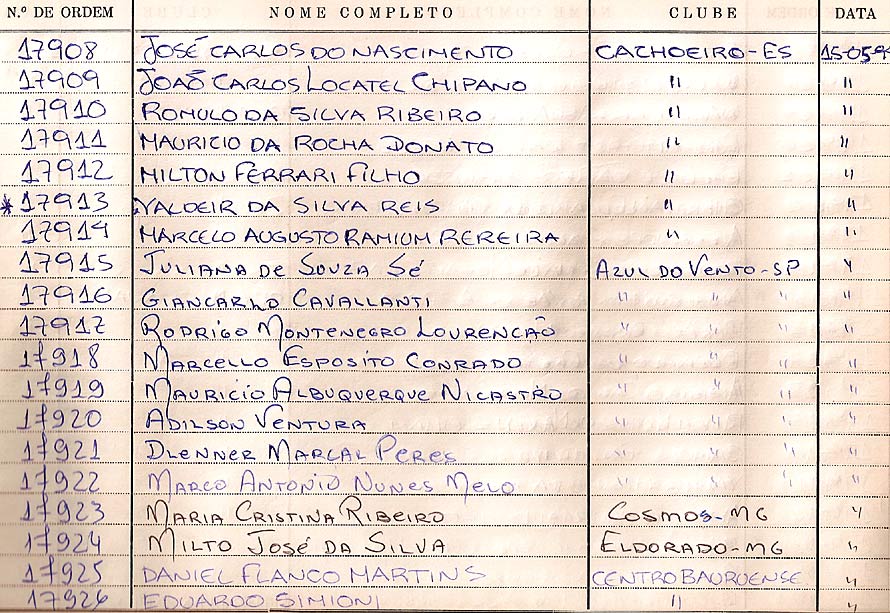 N.º DE ORDEM NOME COMPLETO CLUBE DATA
17908 JOSÉ CARLOS DO NASCIMENTO CACHOEIRO-ES 15-05-9
17909 JOAÕ CARLOS LOCATEL CHIPANO " "
17910 ROMULO DA SILVA RIBEIRO " "
17911 MAURICIO DA ROCHA DONATO " "
17912 MILTON FERRARI FILHO " "
*17913 VALDEIR DA SILVA REIS " "
17914 MARCELO AUGUSTO RAMIUM PEREIRA " "
17915 JULIANA DE SOUZA SÉ AZUL DO VENTO-SP "
17916 GIANCARLO CAVALLANTI " " " "
17917 RODRIGO MONTENEGRO LOURENCÃO " " " "
17918 MARCELLO ESPOSITO CONRADO " " " "
17919 MAURICIO ALBUQUERQUE NICASTRO " " " "
17920 ADILSON VENTURA " " " "
17921 DLENNER MARCAL PERES " " " "
17922 MARCO ANTONIO NUNES MELO " " " "
17923 MARIA CRISTINA RIBEIRO COSMOS-MG "
17924 MILTO JOSÉ DA SILVA ELDORADO-MG "
17925 DANIEL FLANCO MARTINS CENTRO BAURUENSE "
17926 EDUARDO SIMIONI " "